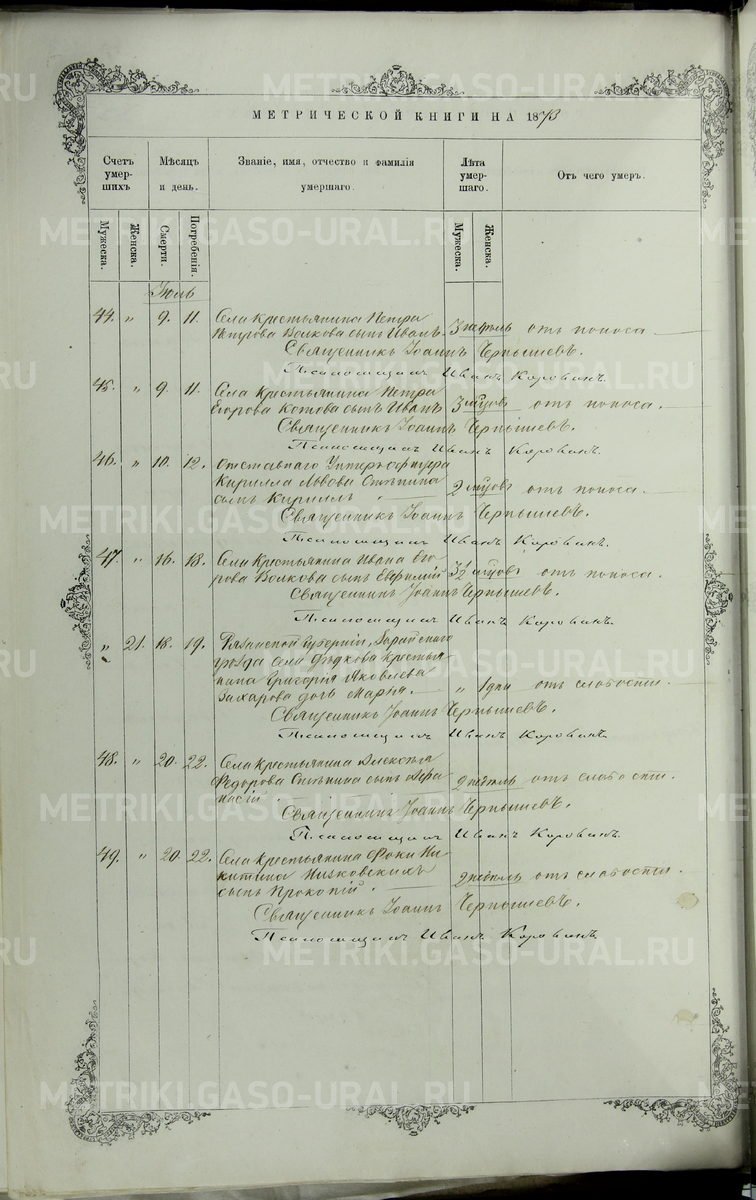 МЕТРИЧЕСКОЙ КНИГИ НА 1873
Счетъ умер- шихъ
Мѣсяцъ и день.
Званіе, имя, отчество и фамилія умершаго.
Лѣта умер- шаго.
Отъ чего умеръ.
Мужеска. Женска. Смерти. Погребенія. Мужеска. Женска.
Іюль
44. „ 9. 11. Села Крестьянина Петра
Петрова Волкова сынъ Иванъ. 3 недѣль отъ поноса
Священникъ Іоаннъ Чернышевъ.
Псаломщикъ Иванъ Коровинъ.
45. „ 9 11. Села Крестьянина Петра
Егорова Котова сынъ Иванъ 3 мѣсяцовъ отъ поноса.
Священникъ Іоаннъ Чернышевъ.
Псаломщикъ Иванъ Коровинъ.
46. „ 10. 12. Отставнаго Унтеръ-офицера
Кирилла Львова
сынъ Кириллъ 2 мѣсяцовъ отъ поноса.
Священникъ Іоаннъ Чернышевъ.
Псаломщикъ Иванъ Коровинъ.
47. „ 16. 18. Села Крестьянина Ивана Его-
рова Волкова сынъ Евфимій 3½ мѣсяцовъ отъ поноса.
Священникъ Іоаннъ Чернышевъ.
Псаломщикъ Иванъ Коровинъ.
„ 21. 18. 19. Рязанской Губерніи, Зарайскаго
уѣзда села Дѣдкова крестья-
нина Григорія Яковлева
Захарова дочь Марія. „ 1 дня отъ слабости.
Священникъ Іоаннъ Чернышевъ.
Псаломщикъ Иванъ Коровинъ.
48. „ 20. 22. Села Крестьянина Алексѣя
Федорова сынъ Афа-
насій 2 недѣль отъ слабости.
Священникъ Іоаннъ Чернышевъ.
Псаломщикъ Иванъ Коровинъ.
49. „ 20. 22. Села Крестьянина Фоки Ни-
китина Низковскихъ
сынъ Прокопій. 2 недѣль отъ слабости.
Священникъ Іоаннъ Чернышевъ.
Псаломщикъ Иванъ Коровинъ.
METRIKI.GASO-URAL.RU